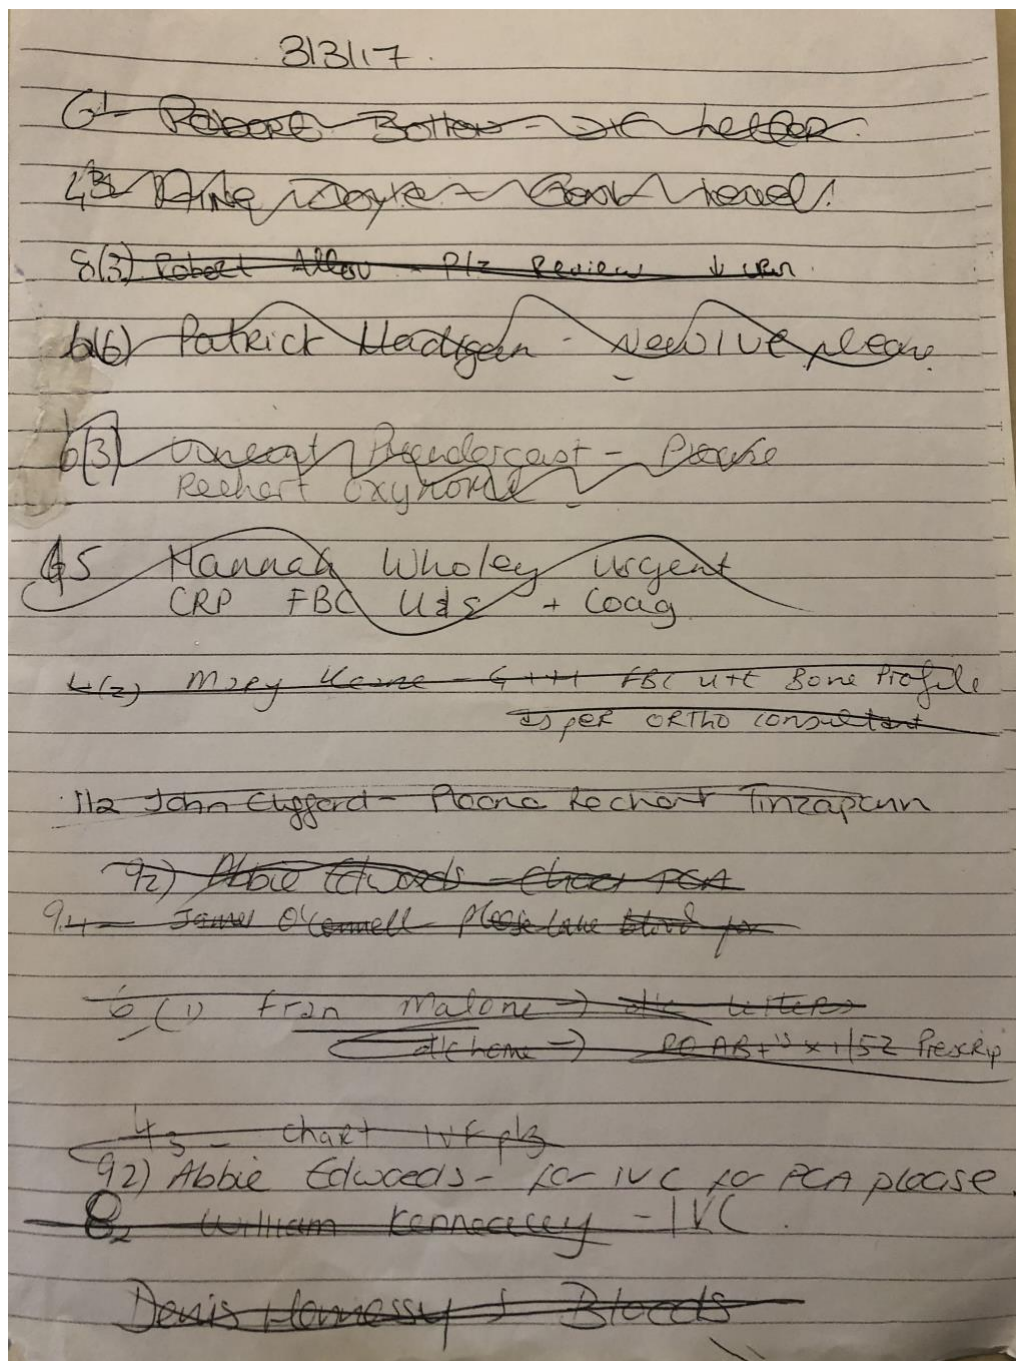 3/3/17.
61- Robert Botton - D/C letter.
Aine Doyle - Cook level!
8(3) Robert Allen - Plz Review ↓ urn.
6(6) Patrick Hadigan - New IVC please.
6(3) Vincent Prendercast - Please
Rechart Oxynorm
45 Hannah Wholey urgent
CRP FBC U&E + Coag
4(2) Mary Keane - G+H FBC U+E Bone Profile
as per ORTHO consultant
112 John Cliggard - Please Rechart Tinzaparin
92) Abbie Edwards - Chart PCA
9.4 - James O'Connell - please take blood for
6(1) Fran Malone → d/c letters
d/c home → Prescrip
43 - chart IVF plz
92) Abbie Edwards - for IVC for PCA please.
82 William Kennedy - IVC.
Denis Hennessy Bloods